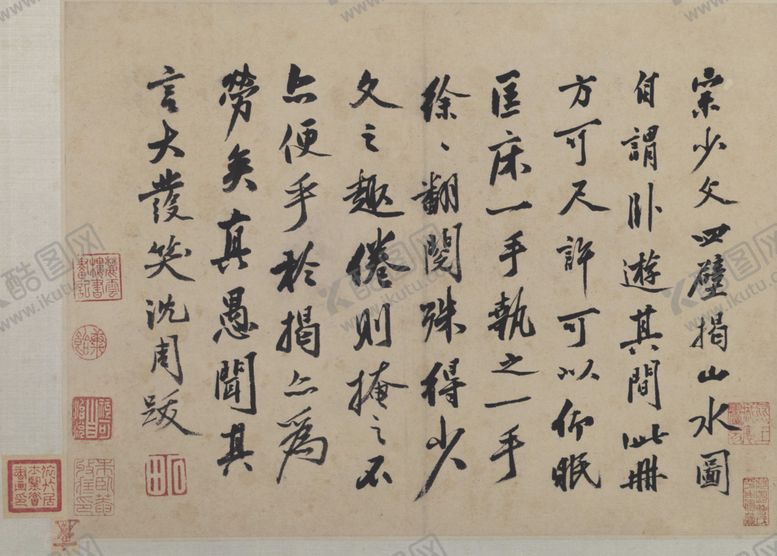 宗少文四壁揭山水圖
自謂臥遊其間此冊
方可尺許可以仰眠
匡床一手執之一手
徐〻翻閱殊得少
文之趣倦則掩之不
亦便乎於揭亦為
勞矣真愚聞其
言大發笑沈周跋
石田
酷图网
www.ikutu.com